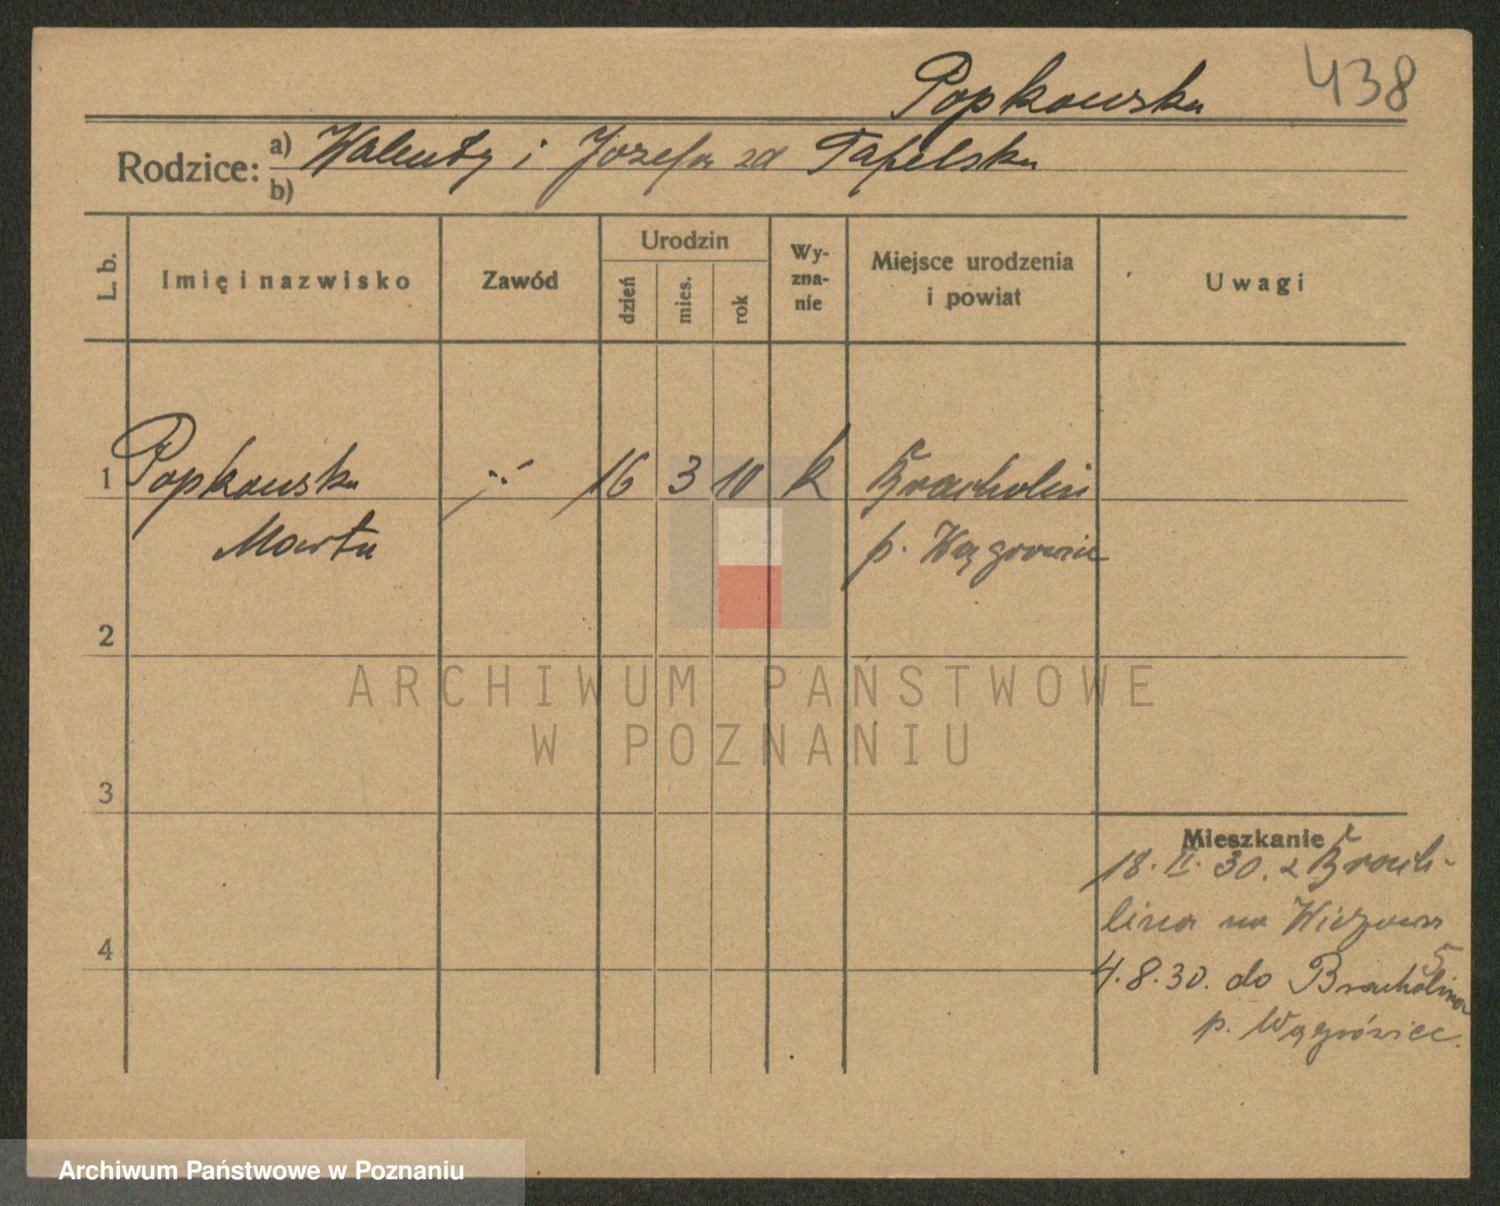 Popkowska 438
Rodzice: a) Walenty i Józefa zd Tafelska
b)
L. b. Imię i nazwisko Zawód Urodzin dzień mies. rok Wyznanie Miejsce urodzenia i powiat Uwagi
1 Popkowska 16 3 10 k Bracholin
Marta p. Wągrowiec
2
3
Mieszkanie
18. II. 30. z Brach-
lina na
4
4.8.30. do Bracholina
p. Wągrowiec.
ARCHIWUM PAŃSTWOWE
W POZNANIU
Archiwum Państwowe w Poznaniu